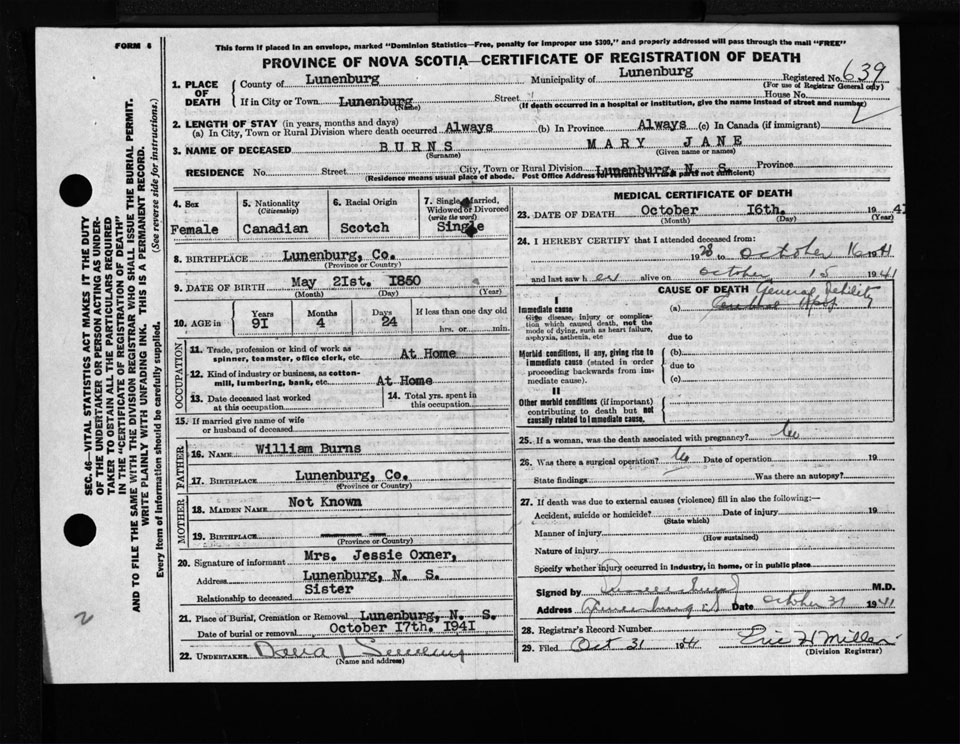 FORM 6
This form if placed in an envelope, marked "Dominion Statistics—Free, penalty for improper use $300," and properly addressed will pass through the mail "FREE"
PROVINCE OF NOVA SCOTIA—CERTIFICATE OF REGISTRATION OF DEATH
SEC. 46—VITAL STATISTICS ACT MAKES IT THE DUTY
OF THE UNDERTAKER OR PERSON ACTING AS UNDER-
TAKER TO OBTAIN ALL THE PARTICULARS REQUIRED
IN THE "CERTIFICATE OF REGISTRATION OF DEATH"
AND TO FILE THE SAME WITH THE DIVISION REGISTRAR WHO SHALL ISSUE THE BURIAL PERMIT.
WRITE PLAINLY WITH UNFADING INK. THIS IS A PERMANENT RECORD.
Every item of information should be carefully supplied. (See reverse side for instructions.)
1. PLACE OF DEATH
County of Lunenburg Municipality of Lunenburg Registered No. 639
(For use of Registrar General only)
If in City or Town Lunenburg Street House No.
(Name) (If death occurred in a hospital or institution, give the name instead of street and number)
2. LENGTH OF STAY (in years, months and days)
(a) In City, Town or Rural Division where death occurred Always (b) In Province Always (c) In Canada (if immigrant)
3. NAME OF DECEASED BURNS MARY JANE
(Surname) (Given name or names)
RESIDENCE No. Street City, Town or Rural Division Lunenburg, N. S. Province
(Residence means usual place of abode. Post Office Address for residents in rural parts not sufficient)
4. Sex
Female
5. Nationality
(Citizenship)
Canadian
6. Racial Origin
Scotch
7. Single, Married,
Widowed or Divorced
(write the word)
Single
8. BIRTHPLACE Lunenburg, Co.
(Province or Country)
9. DATE OF BIRTH May 21st. 1850
(Month) (Day) (Year)
10. AGE in
Years Months Days If less than one day old
91 4 24 hrs. or min.
OCCUPATION
11. Trade, profession or kind of work as
spinner, teamster, office clerk, etc. At Home
12. Kind of industry or business, as cotton-
mill, lumbering, bank, etc. At Home
13. Date deceased last worked
at this occupation
14. Total yrs. spent in
this occupation
15. If married give name of wife
or husband of deceased
FATHER
16. NAME William Burns
17. BIRTHPLACE Lunenburg, Co.
(Province or Country)
MOTHER
18. MAIDEN NAME Not Known
19. BIRTHPLACE
(Province or Country)
20. Signature of informant Mrs. Jessie Oxner,
Address Lunenburg, N. S.
Relationship to deceased Sister
21. Place of Burial, Cremation or Removal Lunenburg, N. S.
Date of burial or removal October 17th. 1941
22. UNDERTAKER
(Name and address)
MEDICAL CERTIFICATE OF DEATH
23. DATE OF DEATH October 16th. 1941
(Month) (Day) (Year)
24. I HEREBY CERTIFY that I attended deceased from:
1928 to October 16 1941
and last saw her alive on October 15 1941
CAUSE OF DEATH
I
Immediate cause
Give disease, injury or complica-
tion which caused death, not the
mode of dying, such as heart failure,
asphyxia, asthenia, etc
(a) General debility
due to
Morbid conditions, if any, giving rise to
immediate cause (stated in order
proceeding backwards from im-
mediate cause).
(b)
due to
(c)
II
Other morbid conditions (if important)
contributing to death but not
causally related to immediate cause.
25. If a woman, was the death associated with pregnancy?
26. Was there a surgical operation? Date of operation 19
State findings Was there an autopsy?
27. If death was due to external causes (violence) fill in also the following:—
Accident, suicide or homicide? Date of injury 19
(State which)
Manner of injury
(How sustained)
Nature of injury
Specify whether injury occurred in industry, in home, or in public place
Signed by M.D.
Address Date October 31 1941
28. Registrar's Record Number
29. Filed Oct 31 1941 Eric H Miller
(Division Registrar)